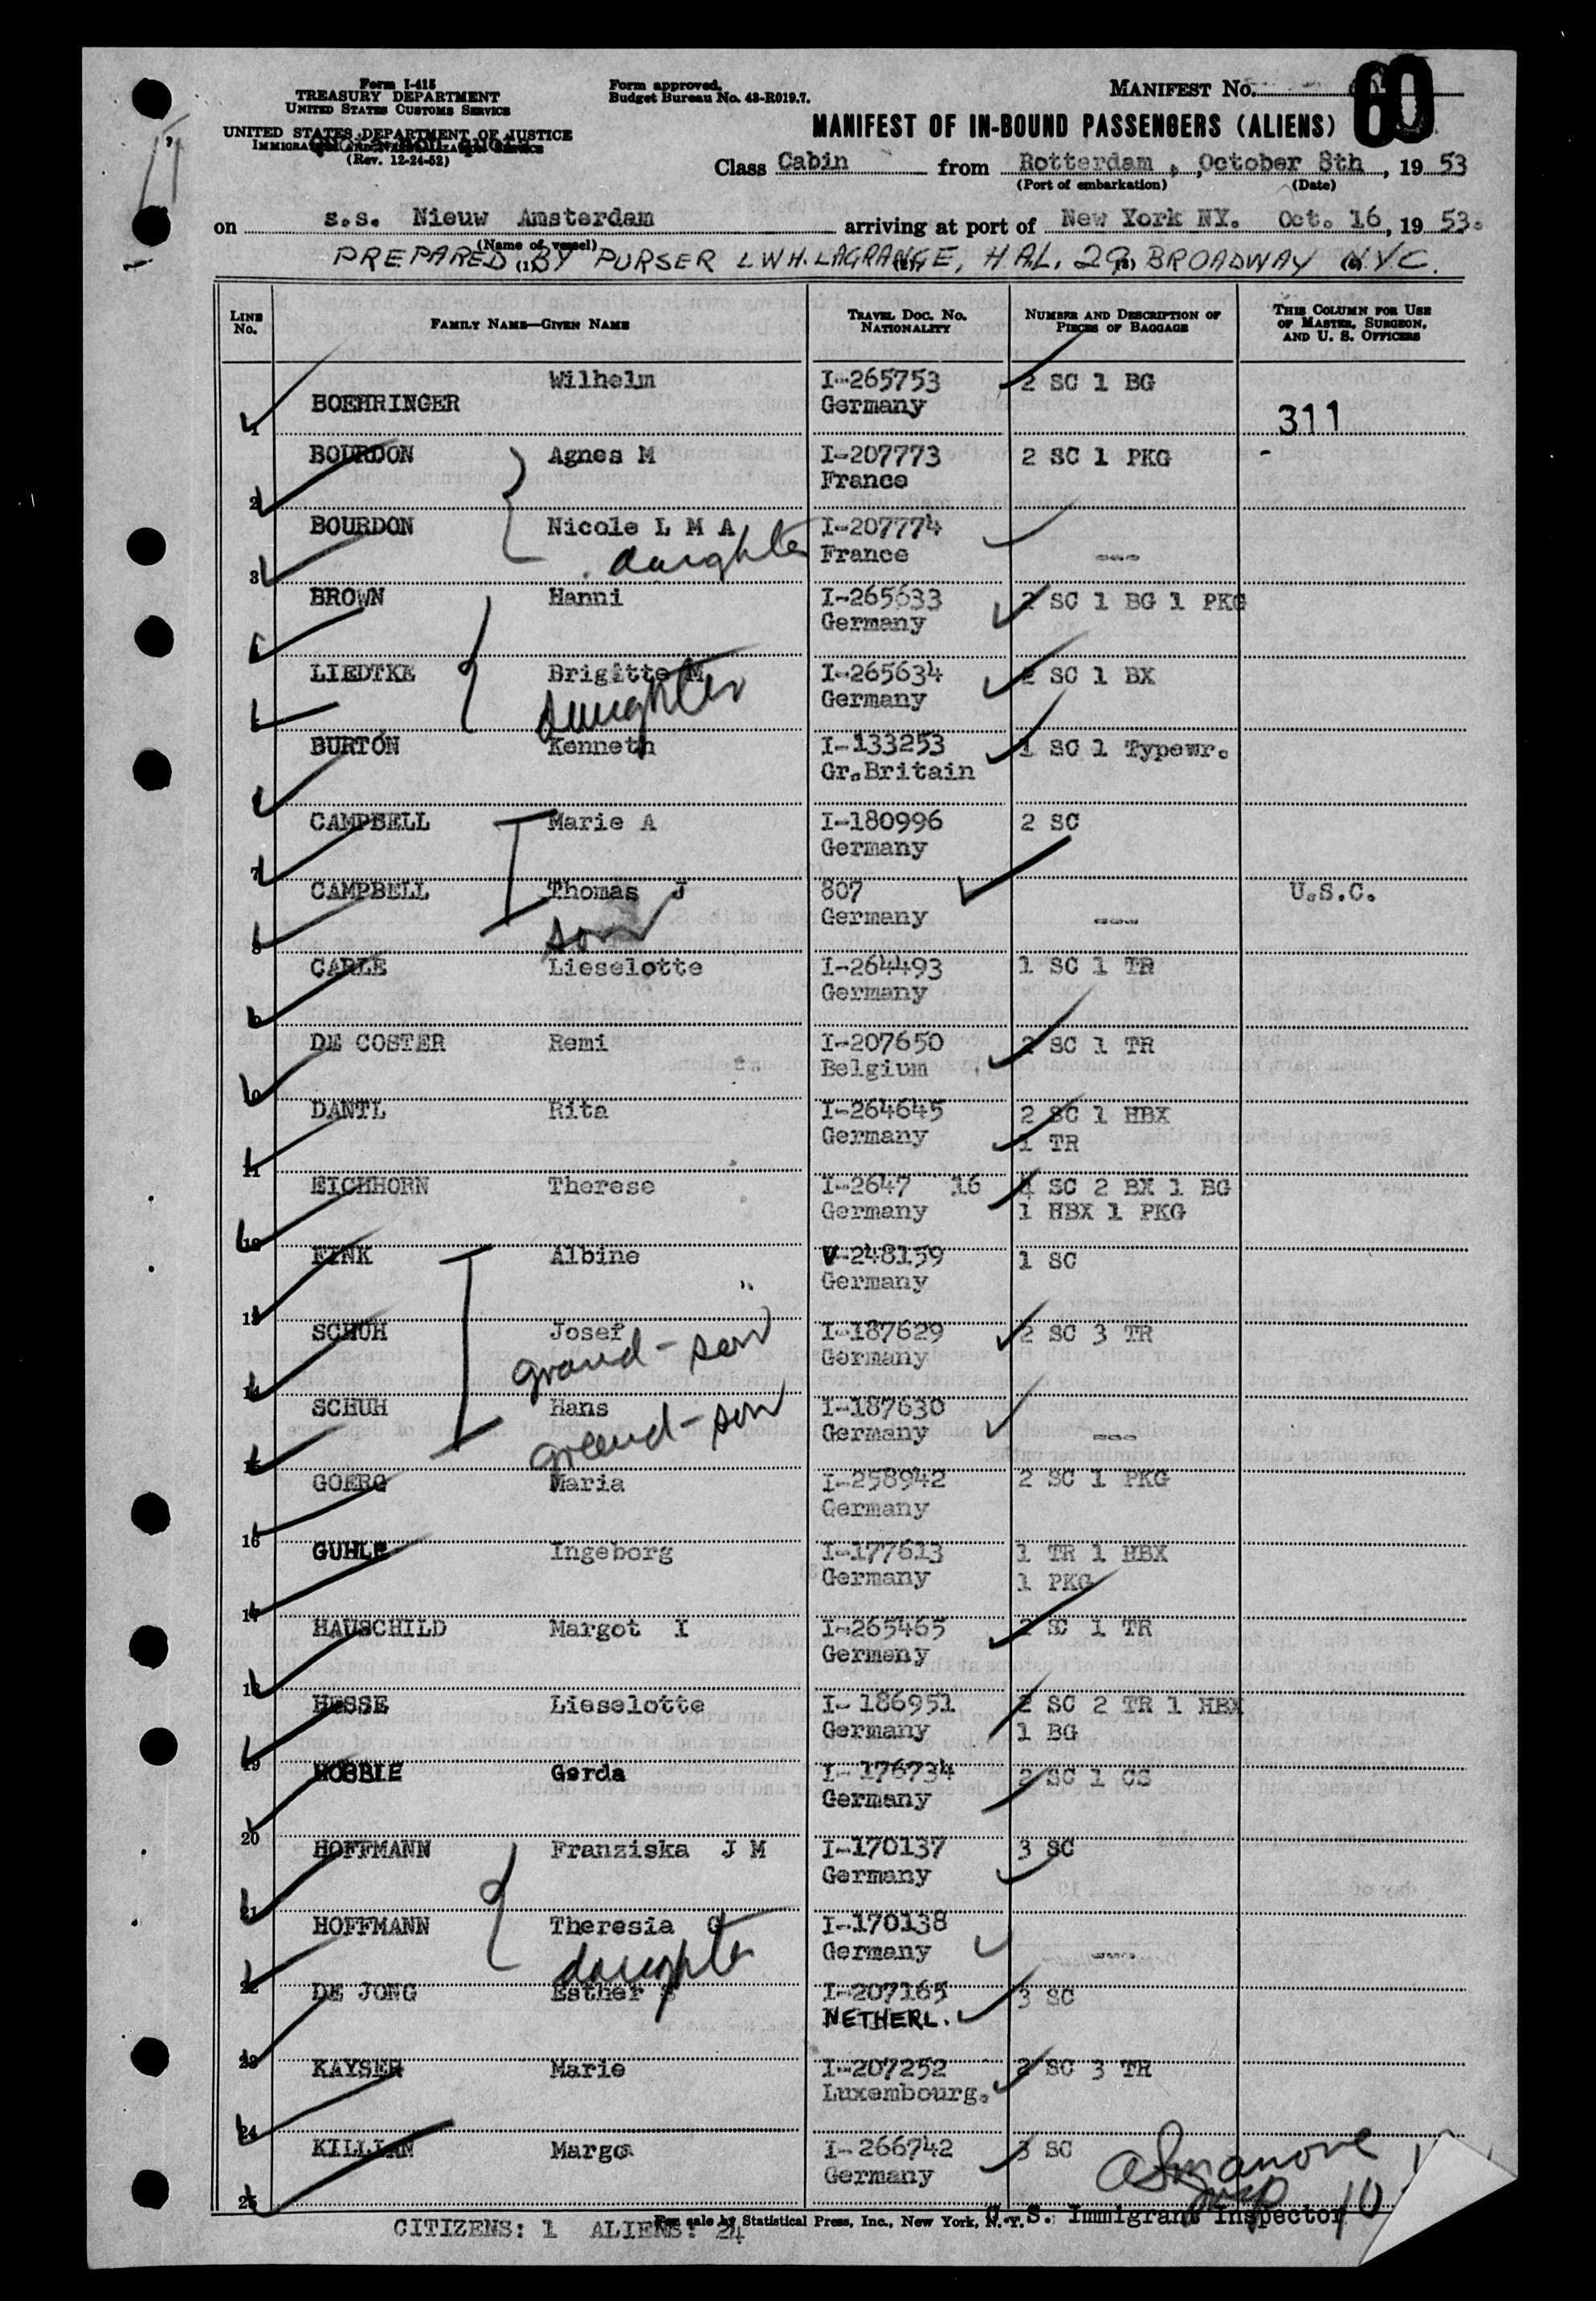 Form I-415
TREASURY DEPARTMENT
UNITED STATES CUSTOMS SERVICE
UNITED STATES DEPARTMENT OF JUSTICE
(Rev. 12-24-52)
Form approved.
Budget Bureau No. 43-R019.7.
MANIFEST No. 60
MANIFEST OF IN-BOUND PASSENGERS (ALIENS)
Class Cabin from Rotterdam, October 8th, 19 53
(Port of embarkation) (Date)
on s.s. Nieuw Amsterdam arriving at port of New York NY. Oct. 16, 19 53.
(Name of vessel)
PREPARED BY PURSER L W H. LAGRANGE, HAL, 29 BROADWAY NYC.
(1) (2) (3) (4)
LINE No. FAMILY NAME—GIVEN NAME TRAVEL DOC. NO. NATIONALITY NUMBER AND DESCRIPTION OF PIECES OF BAGGAGE THIS COLUMN FOR USE OF MASTER, SURGEON, AND U. S. OFFICERS
1 BOEHRINGER Wilhelm I-265753 Germany 2 SC 1 BG 311
2 BOURDON Agnes M I-207773 France 2 SC 1 PKG -
3 BOURDON Nicole L M A daughter I-207774 France ---
BROWN Hanni I-265633 Germany 2 SC 1 BG 1 PKG
LIEDTKE Brigitte M daughter I-265634 Germany 2 SC 1 BX
BURTON Kenneth I-133253 Gr.Britain 1 SC 1 Typewr.
7 CAMPBELL Marie A I-180996 Germany 2 SC
8 CAMPBELL Thomas J son 807 Germany --- U.S.C.
CARLE Lieselotte I-264493 Germany 1 SC 1 TR
DE COSTER Remi I-207650 Belgium 2 SC 1 TR
11 DANTL Rita I-264645 Germany 2 SC 1 HBX
1 TR
12 EICHHORN Therese I-2647 16 Germany 4 SC 2 BX 1 BG
1 HBX 1 PKG
13 FINK Albine V-248159 Germany 1 SC
14 SCHUH Josef grand-son I-187629 Germany 2 SC 3 TR
15 SCHUH Hans grand-son I-187630 Germany ---
16 GOERG Maria I-258942 Germany 2 SC 1 PKG
17 GUHLE Ingeborg I-177613 Germany 1 TR 1 HBX
1 PKG
18 HAUSCHILD Margot I I-265465 Germany 2 SC 1 TR
19 HESSE Lieselotte I-186951 Germany 2 SC 2 TR 1 HBX
1 BG
20 Gerda I-176734 Germany 2 SC 1 CS
21 HOFFMANN Franziska J M I-170137 Germany 3 SC
22 HOFFMANN Theresia G daughter I-170138 Germany ---
23 DE JONG Esther I-207165 NETHERL. 3 SC
24 KAYSER Marie I-207252 Luxembourg. 2 SC 3 TR
25 KILLIAN Margo I-266742 Germany 3 SC
U. S. Immigrant Inspector 10
For sale by Statistical Press, Inc., New York, N. Y.
CITIZENS: 1 ALIENS: 24